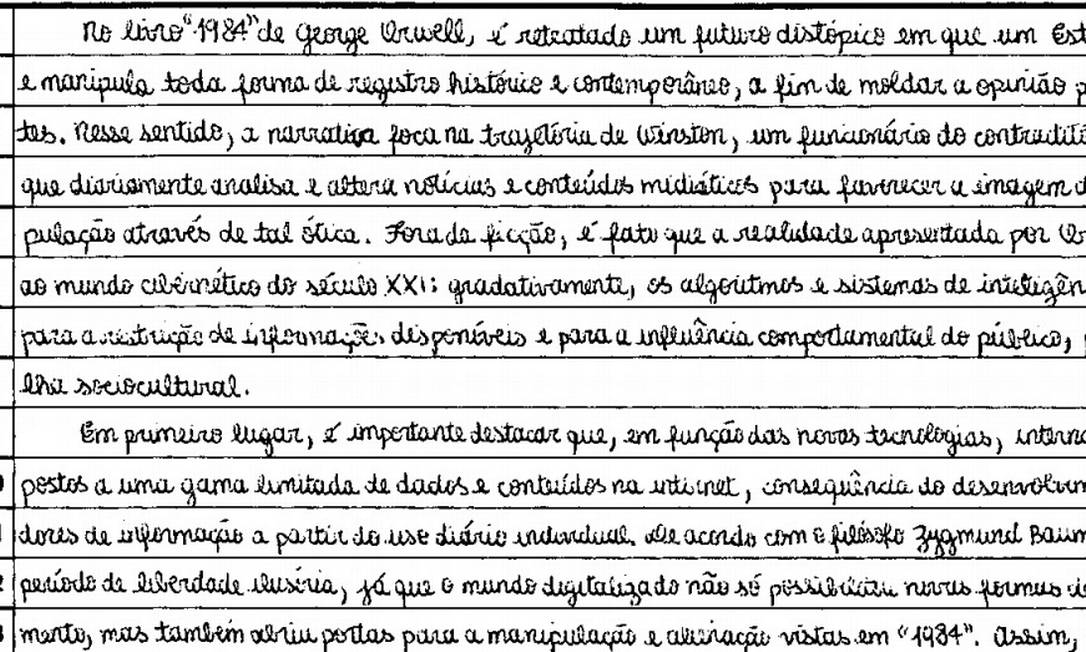 No livro "1984" de George Orwell, é retratado um futuro distópico em que um Est
e manipula toda forma de registro histórico e contemporâneo, a fim de moldar a opinião p
tes. Nesse sentido, a narrativa foca na trajetória de Winston, um funcionário do contraditó
que diariamente analisa e altera notícias e conteúdos midiáticos para favorecer a imagem d
pulação através de tal ótica. Fora da ficção, é fato que a realidade apresentada por Or
ao mundo cibernético do século XXI: gradativamente, os algoritmos e sistemas de inteligên
para a restrição de informações disponíveis e para a influência comportamental do público, p
lha sociocultural.
Em primeiro lugar, é importante destacar que, em função das novas tecnologias, interna
postos a uma gama limitada de dados e conteúdos na internet, consequência do desenvolvim
dores de informação a partir do uso diário individual. De acordo com o filósofo Zygmund Baum
período de liberdade ilusória, já que o mundo digitalizado não só possibilitou novas formas de
mento, mas também abriu portas para a manipulação e alienação vistas em "1984". Assim,